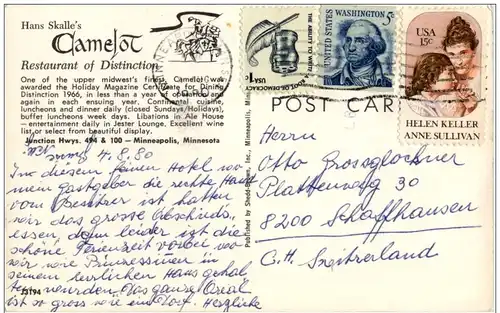 Hans Skalle's
Camelot
Restaurant of Distinction
One of the upper midwest's finest. Camelot was
awarded the Holiday Magazine Certificate for Dining
Distinction 1966, in less than a year of operation and
again in each ensuing year. Continental cuisine,
luncheons and dinner daily (closed Sundays/Holidays),
buffet luncheons week days. Libations in Ale House
— entertainment daily in Jester Lounge. Excellent wine
list or select from beautiful display.
Junction Hwys. 494 & 100 — Minneapolis, Minnesota
4.8.80
In diesem feinen Hotel wo
mein Gastgeber die rechte Hand
vom Besitzer ist hatten
wir das grosse Abschieds-
essen, denn leider ist die
schöne Ferienzeit vorbei wo
wir wie Prinzessinnen in
seinem herrlichen Haus gehal
ten wurden. Das ganze Areal
ist so gross wie ein Dorf. Herzliche
J3194
Published by Shedd-Brown, Inc., Minneapolis, Minn.
THE ABILITY TO WRITE
A ROOT OF DEMOCRACY
USA 1c
WASHINGTON 5c
UNITED STATES
USA
15c
HELEN KELLER
ANNE SULLIVAN
POST CAR
Herrn
Otto Grossglockner
Plattenweg 30
8200 Schaffhausen
C.H. Switzerland